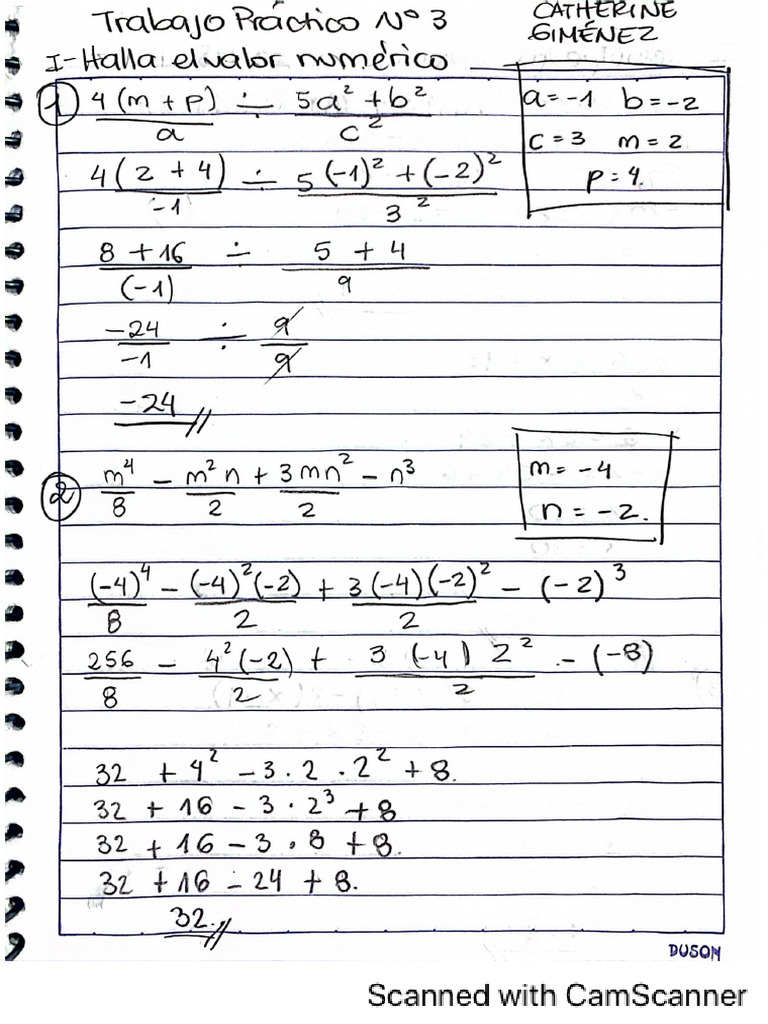 Trabajo Práctico Nº 3
CATHERINE
GIMÉNEZ
I-Halla el valor numérico
① 4(m + p)/a ÷ (5a² + b²)/c²
a = -1 b = -2
c = 3 m = 2
p = 4.
4(2 + 4)/-1 ÷ (5(-1)² + (-2)²)/3²
(8 + 16)/(-1) ÷ (5 + 4)/9
-24/-1 ÷ 9/9
-24//
② m⁴/8 - m²n/2 + 3mn²/2 - n³
m = -4
n = -2.
(-4)⁴/8 - (-4)²(-2)/2 + 3(-4)(-2)²/2 - (-2)³
256/8 - 4²(-2)/2 + 3(-4)2²/2 - (-8)
32 + 4² - 3 . 2 . 2² + 8.
32 + 16 - 3 . 2³ + 8
32 + 16 - 3 . 8 + 8.
32 + 16 - 24 + 8.
32.//
DUSON
Scanned with CamScanner